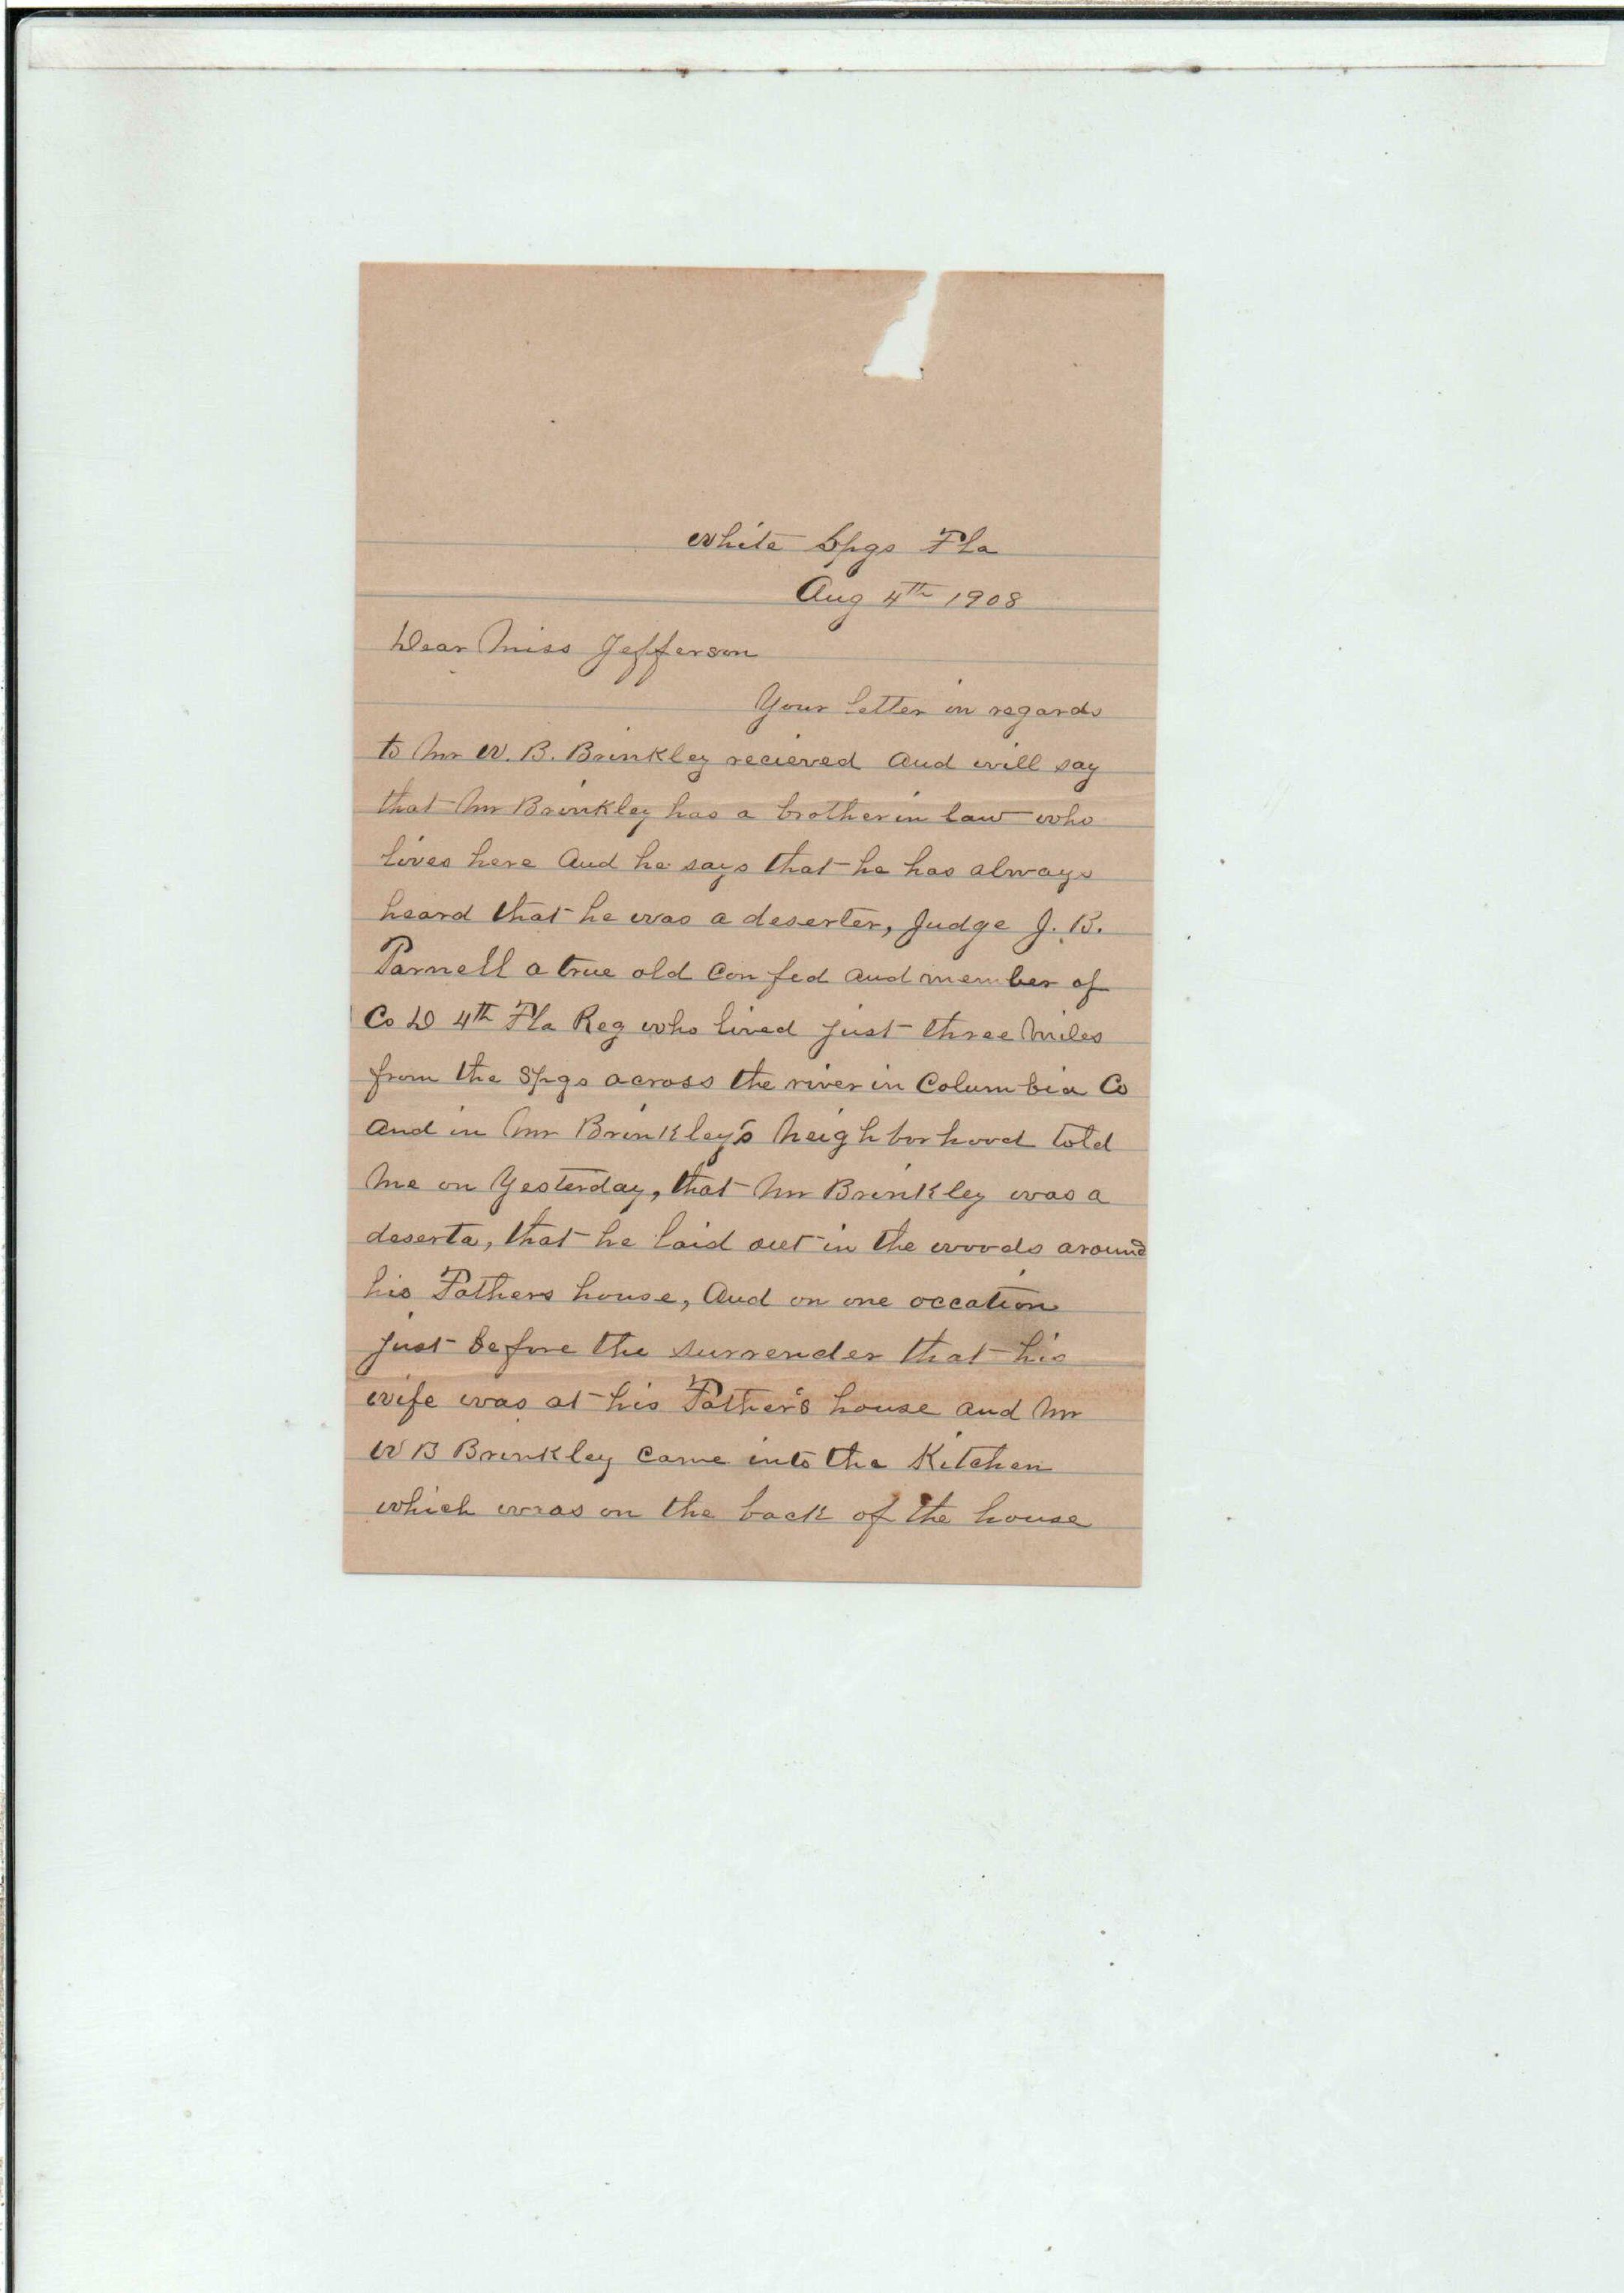 White Spgs Fla
Aug 4th 1908
Dear Miss Jefferson
Your letter in regards
to Mr W. B. Brinkley recieved and will say
that Mr Brinkley has a brother in law who
lives here and he says that he has always
heard that he was a deserter, Judge J. B.
Parnell a true old Confed and member of
Co D 4th Fla Reg who lived just three miles
from the Spgs across the river in Columbia Co
and in Mr Brinkley's neighborhood told
me on Yesterday, that Mr Brinkley was a
deserta, that he laid out in the woods around
his Fathers house, and on one occation
just before the surrender that his
wife was at his Father's house and Mr
W B Brinkley came into the Kitchen
which was on the back of the house